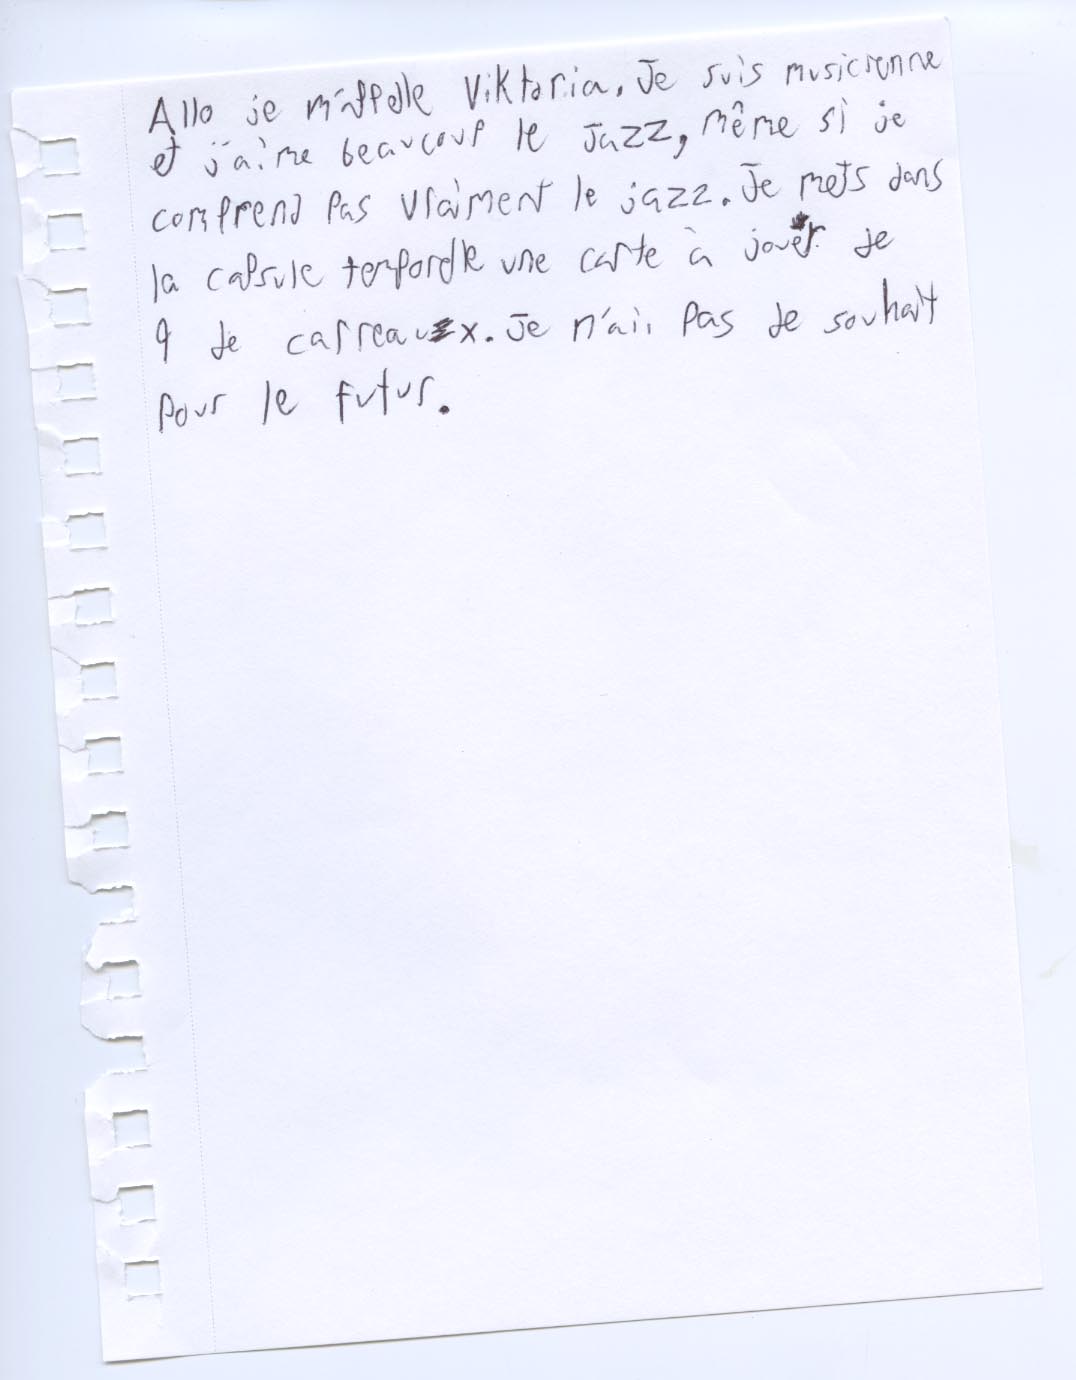 Allo je m'appelle Viktoria. Je suis musicienne
et j'aime beaucoup le jazz, même si je
comprend pas vraiment le jazz. Je mets dans
la capsule temporelle une carte à jouer de
9 de carreaux. Je n'ai pas de souhait
pour le futur.